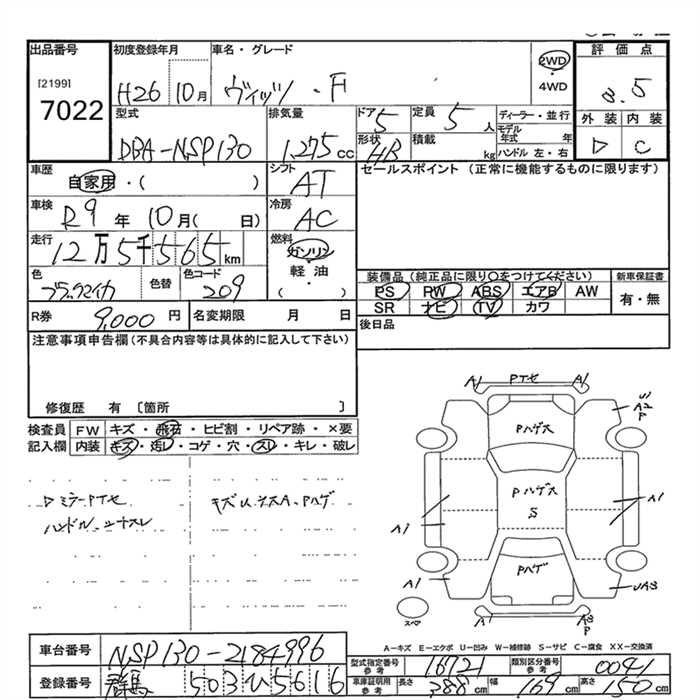 出品番号 初度登録年月 車名・グレード 評価点
[2199]
7022
H26 10月 ヴィッツ・F 2WD・4WD 3.5
型式 排気量 ドア 定員 ディーラー・並行 外装 内装
DBA-NSP130 1,275cc 5 5人 モデル年式 年 D C
形状 積載 ハンドル 左・右
HB kg
車歴 シフト セールスポイント (正常に機能するものに限ります)
自家用・( ) AT
車検 冷房
R9年10月( 日) AC
走行 燃料
12万5千565km ガソリン・軽油・( )
色 色替 色コード 装備品 (純正品に限り○をつけてください) 新車保証書
ブラックマイカ 209 PS PW ABS エアB AW 有・無
R券 9,000円 名変期限 月 日 SR ナビ TV カワ
注意事項申告欄(不具合内容等は具体的に記入して下さい) 後日品
修復歴 有 〔箇所 〕
検査員 FW キズ・飛石・ヒビ割・リペア跡・×要
記入欄 内装 キズ・汚レ・コゲ・穴・スレ・キレ・破レ
DミラーPTセ キズU.エスA.Pハゲ
ハンドル、シナスレ
A1 PTセ A1
A2
P
Pハゲス
Pハゲス
S
A1 A1
Pハゲ
A1 UA3
スペア A1 A3
P
A-キズ E-エクボ U-凹み W-補修跡 S-サビ C-腐食 XX-交換済
車台番号 NSP130-2184996
型式指定番号 参考 16721 類別区分番号 参考 0041
登録番号 群馬 503ひ5616
車庫証明用 参考 長さ 388cm 幅 169cm 高さ 150cm